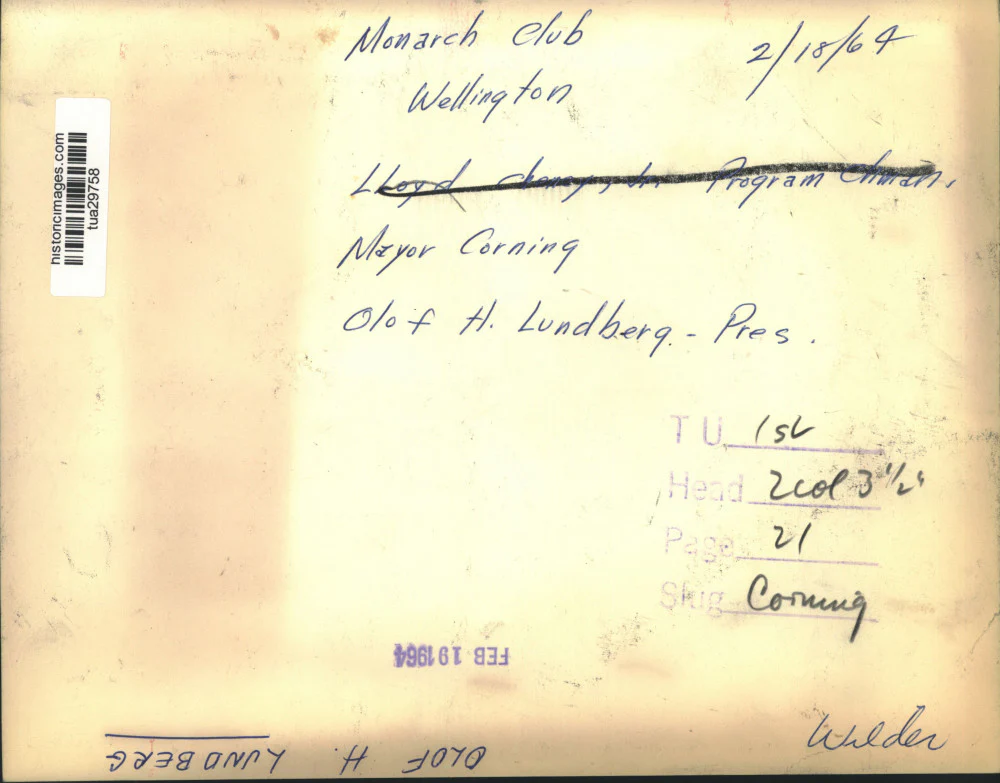 Monarch Club 2/18/64
Wellington
Lloyd Program Chman.
Mayor Corning
Olof H. Lundberg - Pres.
historicimages.com
tua29758
TU 1st
Head 2 col 3 1/2"
Page 21
Slug Corning
FEB 19 1964
Wilder
OLOF H. LUNDBERG